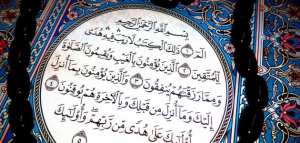 بِسْمِ اللَّهِ الرَّحْمَٰنِ الرَّحِيمِ
الٓمٓ ١ ذَٰلِكَ ٱلْكِتَٰبُ لَا رَيْبَ فِيهِ هُدًى
لِّلْمُتَّقِينَ ٢ ٱلَّذِينَ يُؤْمِنُونَ بِٱلْغَيْبِ وَيُقِيمُونَ ٱلصَّلَوٰةَ
وَمِمَّا رَزَقْنَٰهُمْ يُنفِقُونَ ٣ وَٱلَّذِينَ يُؤْمِنُونَ بِمَآ أُنزِلَ
إِلَيْكَ وَمَآ أُنزِلَ مِن قَبْلِكَ وَبِٱلْءَاخِرَةِ هُمْ يُوقِنُونَ ٤
أُو۟لَٰٓئِكَ عَلَىٰ هُدًى مِّن رَّبِّهِمْ وَأُو۟لَٰٓئِكَ
٥